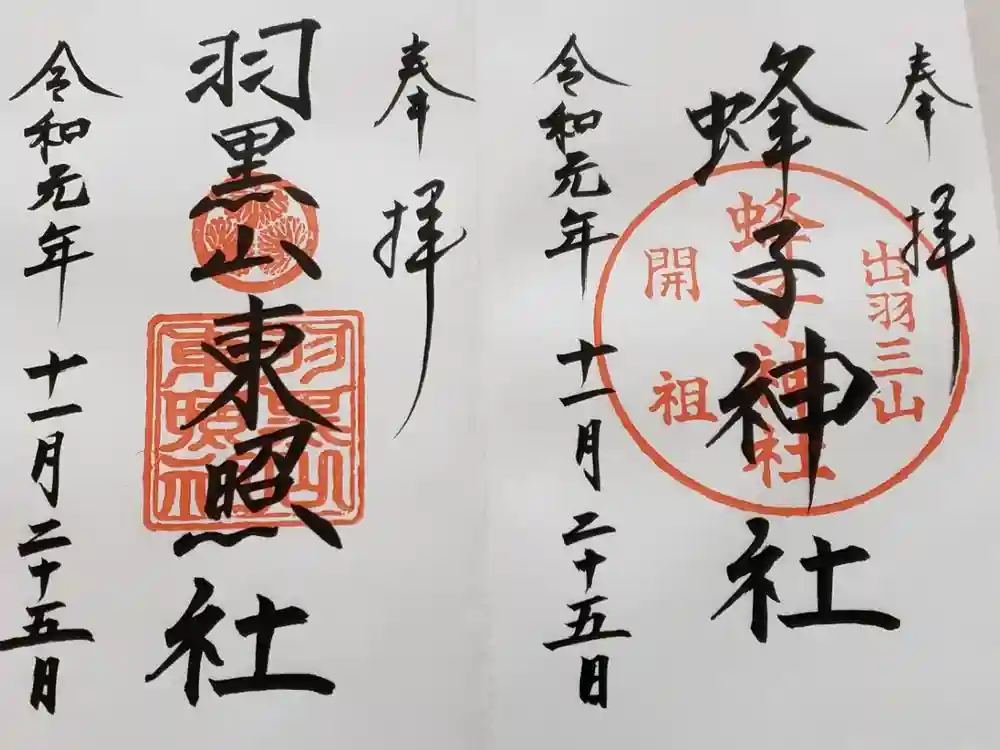 奉拝
蜂子神社
出羽三山
蜂子神社
開祖
令和元年十一月二十五日
奉拝
羽黒山東照社
羽黒山
東照社
令和元年十一月二十五日